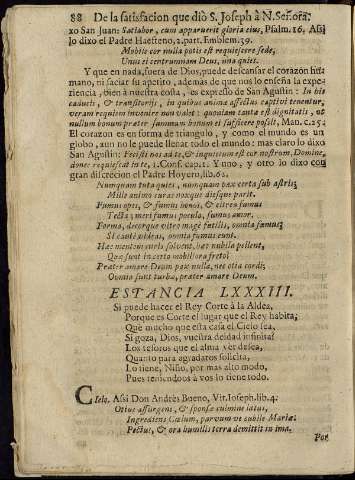 88 De la satisfacion que diò S. Joseph à N. Señora.
xo San Juan: Satiabor, cum apparuerit gloria eius, Psalm. 16. Assi
lo dixo el Padre Haefteno, 2. part. Emblem. 39.
Mobile cor nulla potis est requiescere sede,
Unus ei centrum nam Deus, una quies.
Y que en nada, fuera de Dios, puede descansar el corazòn huma
mano, ni saciar su apetito, además de que nos lo enseña la expe-
riencia, bien à nuestra costa, es expresso de San Agustin: In his
caducis, & transitorijs, in quibus anima affectus captivi tenentur,
veram requiem invenire non valet: quoniam tanta est dignitatis, ut
nullum bonum præter summum bonum ei sufficere possit, Man. c. 25.
El corazon es en forma de triangulo, y como el mundo es un
globo, aun no le puede llenar todo el mundo: mas claro lo dixo
San Agustin: Fecisti nos ad te, & inquietum est cor nostrum, Domine,
donec requiescat in te, 1. Conf. cap. 1. Y uno, y otro lo dixo con
gran discrecion el Padre Hoyero, lib. 62.
Nunquam tuta quies, nunquam pax certa sub astris;
Mille animo curas noxque diesque parit.
Fumus opes, & fumus honos, & vitrea fumus
Tecta; meri fumus pocula, fumus amor.
Forma, decorque vitro magè futilis, omnia fumus;
Si cautè videas, omnia fumus erunt.
Hac mentem curis solvent, hæc nubila pellent,
Quæ sunt in certo mobiliora freto?
Præter amare Deum pax nulla, nec otia cordi;
Omnia sunt turba, præter amare Deum.
ESTANCIA LXXXIII.
Si puede hacer el Rey Corte à la Aldèa,
Porque es Corte el lugar que el Rey habita;
Què mucho que esta casa el Cielo sea,
Si goza, Dios, vuestra deidad infinita?
Los tesoros que el alma vèr desea,
Quanto para agradaros solicita,
Lo tiene, Niño, por mas alto modo,
Pues teniendoos à vos lo tiene todo.
Cielo. Assi Don Andrès Bueno, Vit. Ioseph. lib. 4.
Otius assurgens, & sponsæ culmine latus,
Ingrediens Cælum, parvum ve cubile Mariæ:
Pectus, & ora humilis terra demittit in ima.
Por